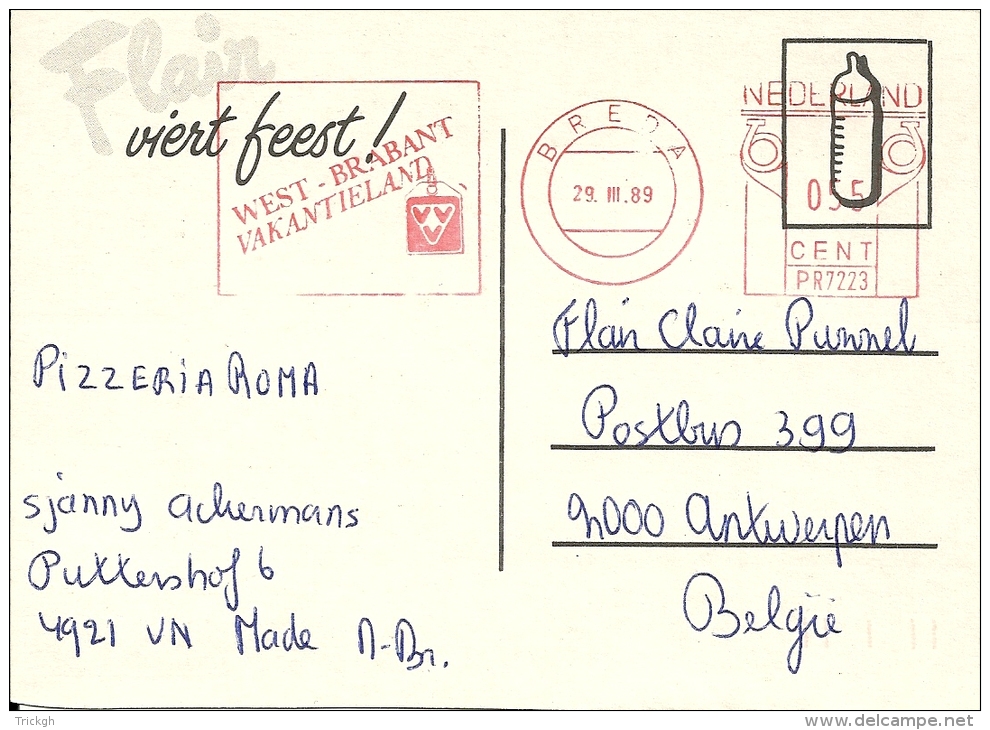 Flair
viert feest!
WEST-BRABANT
VAKANTIELAND
VVV
BREDA
29. III. 89
NEDERLAND
055
CENT
PR7223
PIZZERIA ROMA
sjanny ackermans
Puttershof 6
4921 VN Made N-Br.
Flair Claire Punnel
Postbus 399
2000 Antwerpen
België
Trickgh
www.delcampe.net